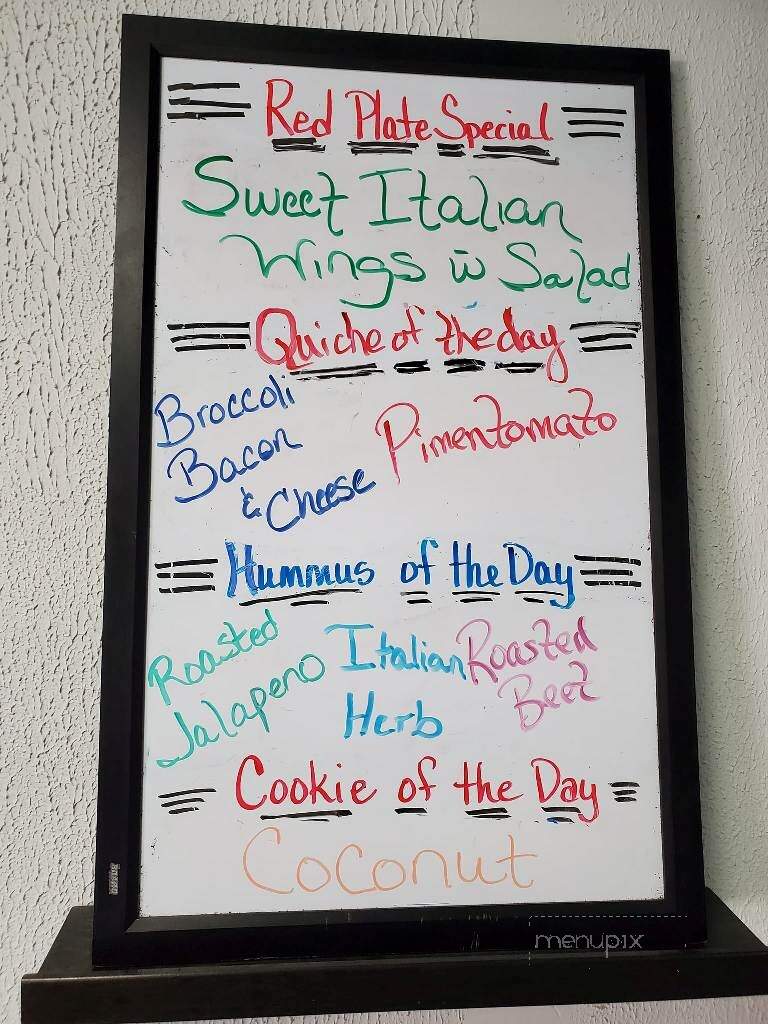 Red Plate Special
Sweet Italian
Wings w̄ Salad
Quiche of the day
Broccoli
Bacon
& Cheese
Pimentomato
Hummus of the Day
Roasted
Jalapeno
Italian
Herb
Roasted
Beet
Cookie of the Day
Coconut
menupix